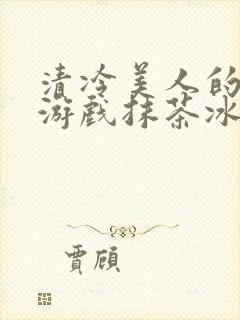 清冷美人的
游戏抹茶冰
贾顾